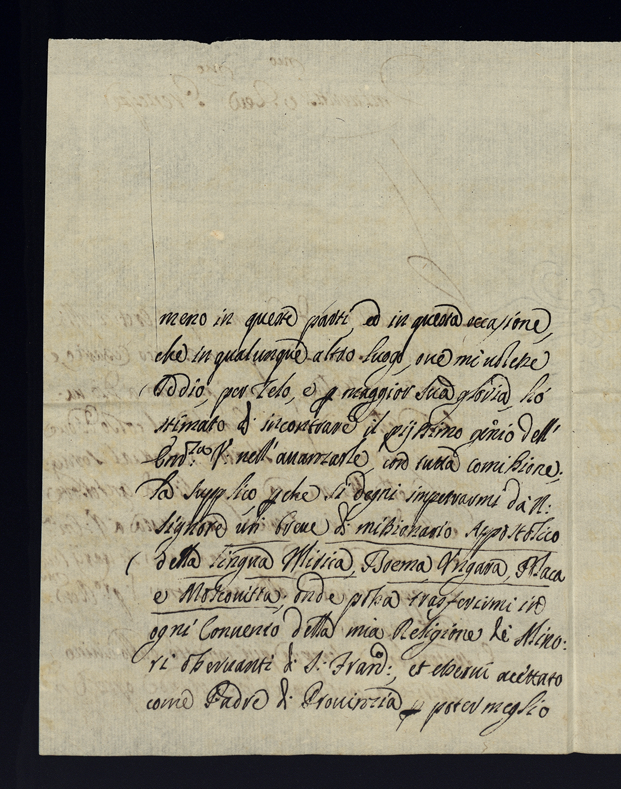 meno in queste parti, ed in questa occasione,
che in qualunque altro luogo, ove mi volesse
Iddio, per zelo, e p maggior sua gloria, hò
stimato di incontrare il pijssimo genio dell'
Em.za V. nell'avanzarle, con tutta comissione,
la supplico pche si degni impetrarmi da N:
Signore un breve di missionario Appostolico
della lingua Boema Ungara,
e Moscovitta, onde possa trasferirmi in
ogni Convento della mia Religione de Mino:
ri osservanti di S: Franc:, et esservi accettato
come Padre di Provinzia p poter meglio